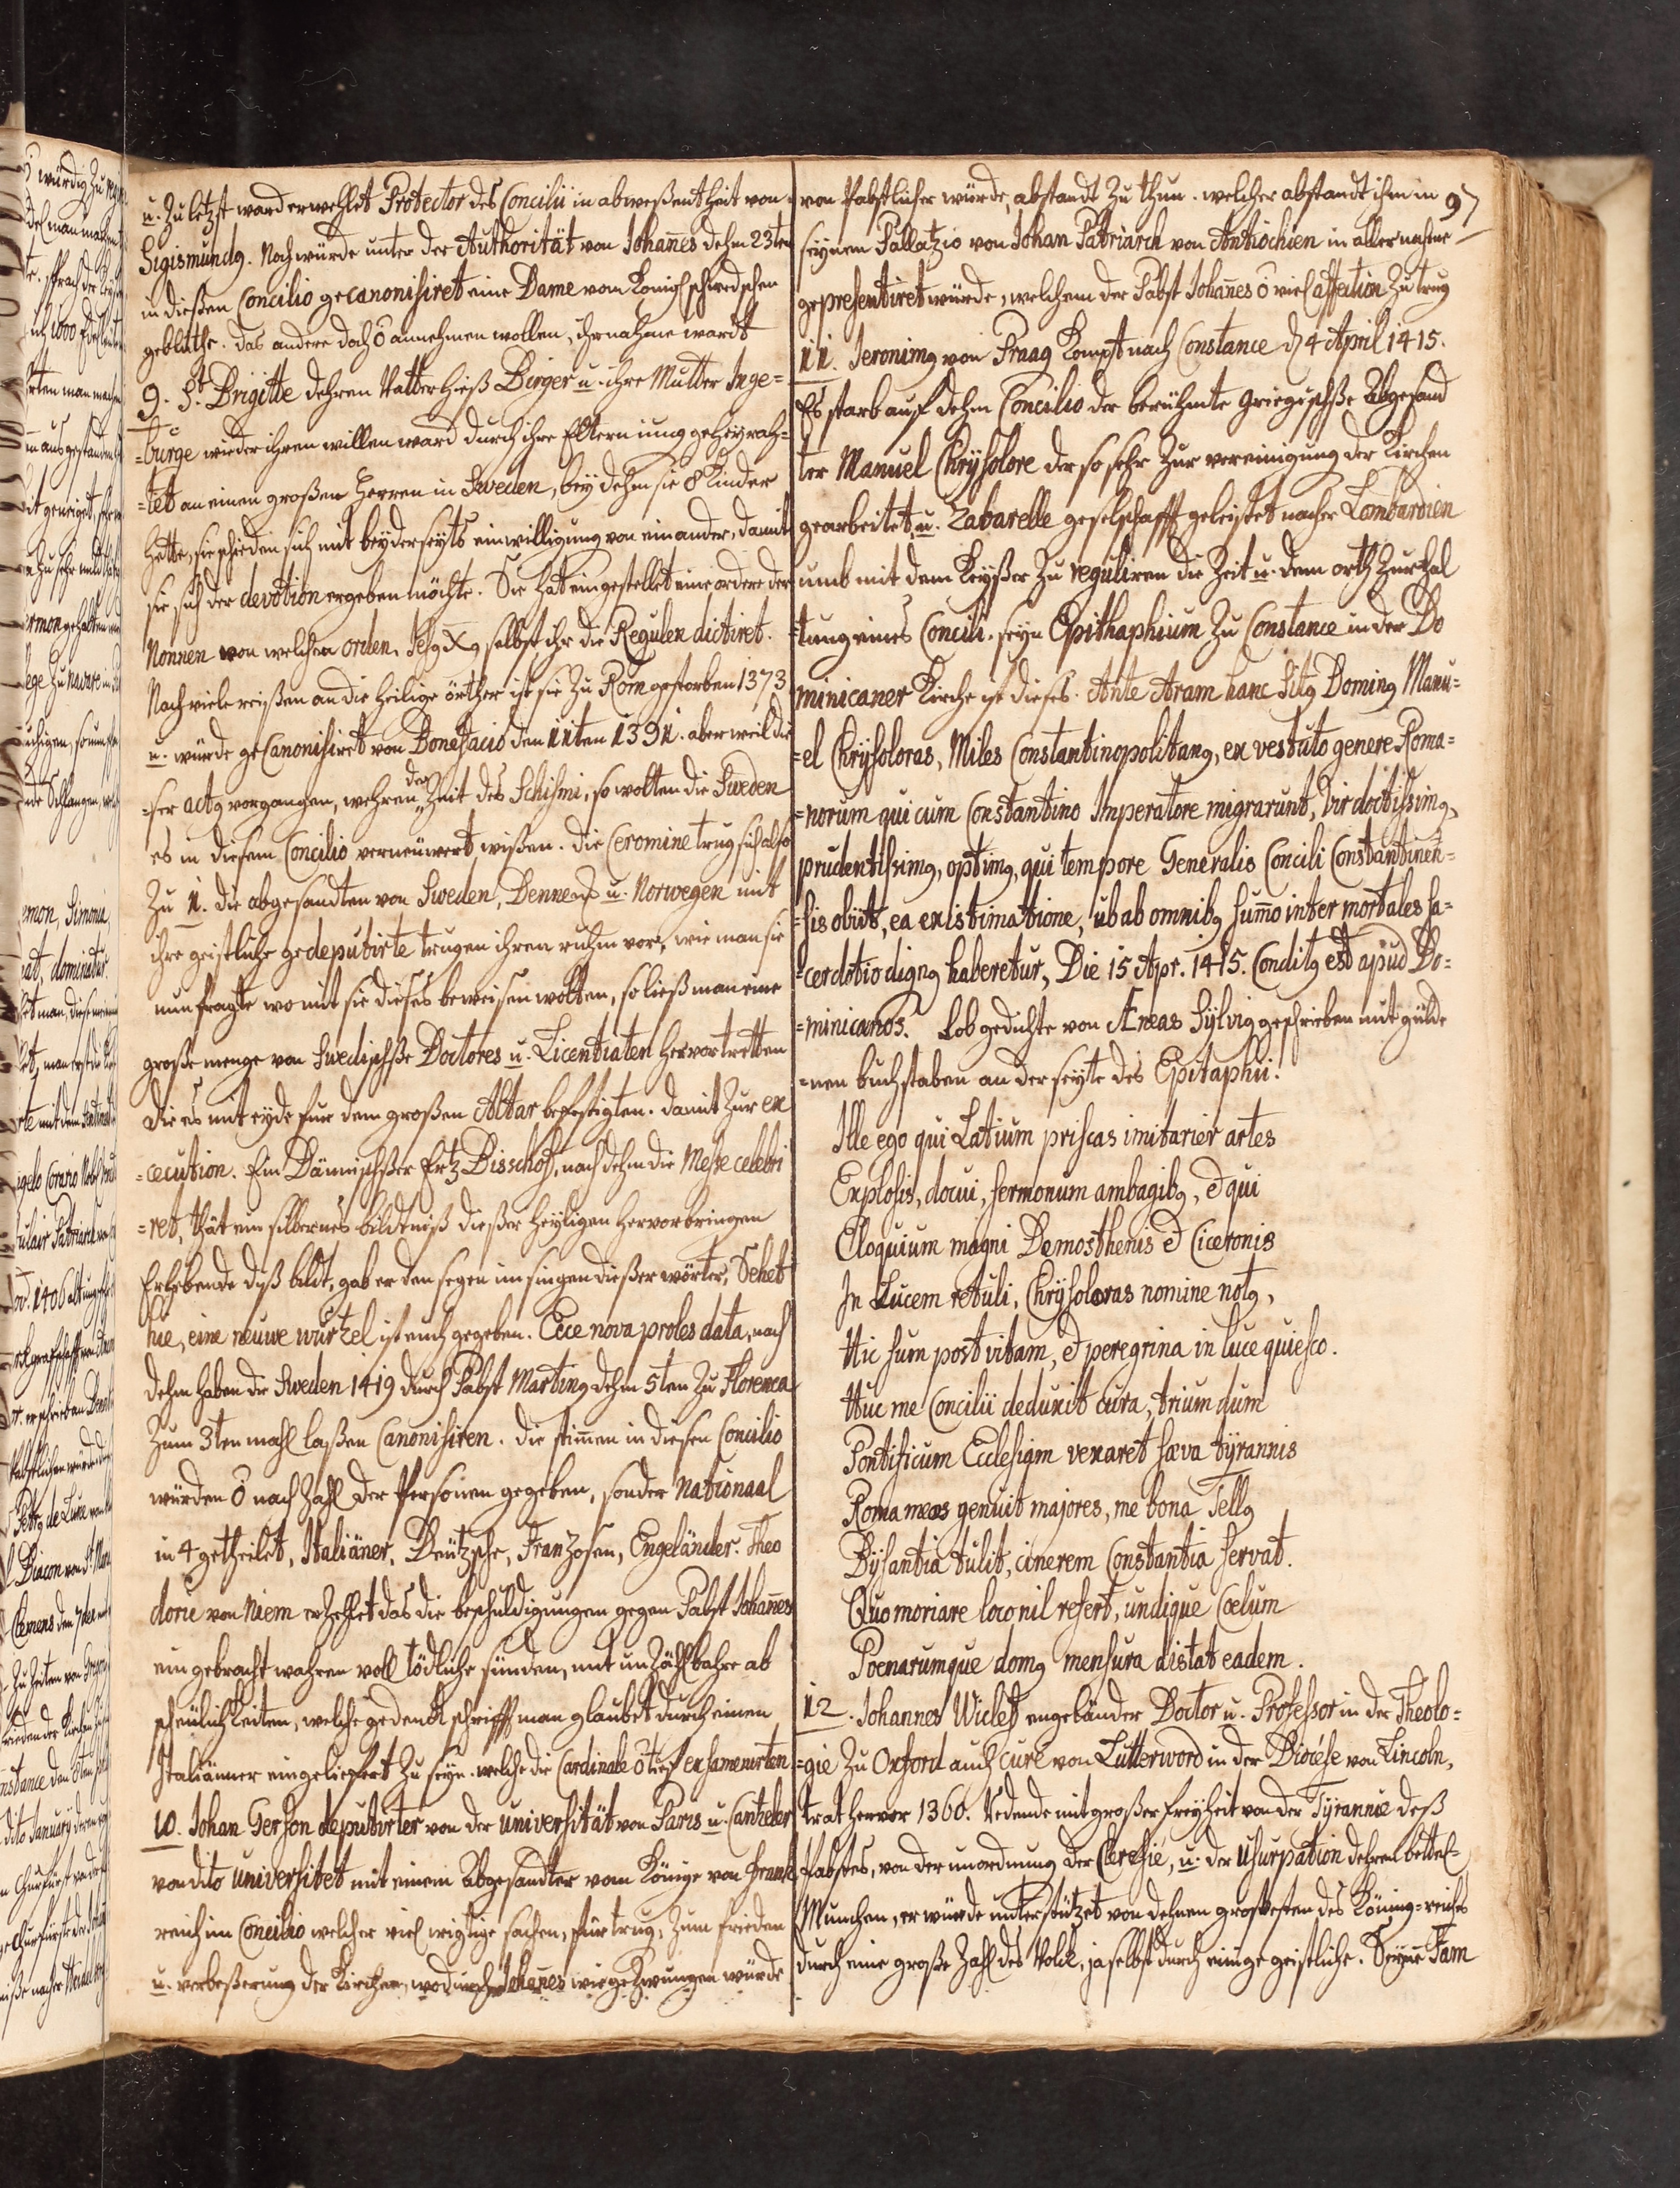 u. Zuletzt ward erwehlet Protector des Concilii in abweßentheit von
Sigismundg. Noch würde unter der Authorität von Johañes dehm 23ten
in dießen Concilio gecanonisiret eine Dame vom Königl schwedschen
geblüthe. das andere doch õ annehmen wollen, ihr nahme wardt
9. St Brigitte dehren Vatter hieß Birger u. ihre Mutter Inge=
=burge wieder ihren willen ward durch ihre Eltern iung geheyrah=
=tet an einen großen Herren in Sweden, bey dehm sie 8 Kinder
hette, sie schieden sich mit beyderseyts einwilligung von einander, damit
sie sich der devotion ergeben möchte. Sie hat eingestellet eine ordere der
Nonnen von welchen orden Jesg Xg selbst ihr die Regulen dictiret.
Nach viele reyßen an die heilige örther ist sie zu Rom gestorben 1373
u. würde geCanonisiret von Bonefacio den 11ten 1391. aber weil die
=ser actg vorgangen, wehren der Zeit des Schismi, so wolten die Sweden
es in diesem Concilio verneuwert wißen. die Ceromine trug sich also
Zu 11. die abgesandten von Sweden, Dennem. u. Norwegen mit
ihre geistliche gedeputirte trugen ihren ruhm vor, wie man sie
nun fragte wo mit sie dieses beweisen wolten, so ließ man eine
große menge von Swedischße Doctores u. Licentiaten hervortretten
die es mit eyde fur dem großen Altar befestigten. damit zur ex
=cecution. Ein Dännischßer Ertz Bisschof, nach dehm die Messe celebri
=ret, thät ein silbernes bildtniß dießer heyligen hervorbringen
Erhebende dyß bildt, gab er den segen im singen dießer wörter, Sehet
hie, eine neuwe wurtzel ist euch gegeben. Ecce nova proles data, nach
dehm haben die Sweden 1419 durch Pabst Marting dehm 5ten zu Florenca
Zum 3ten mahl laßen Canonisiren. die stim̃en in diesen Concilio
würden õ nach zahl der Persönen gegeben, sonder Nationaal
in 4 getheilet, Italiäner, Deutzsche, Franzosen, Engeländer. Theo
dorie von Niem erzehlet das die beschuldigungen gegen Pabst Johañes
ein gebracht wahren voll tödliche sunden, mit unzählbahre ab
scheülichkeiten, welche gedenck schrifft man glaubet durch einen
Italiänner eingeliefert zu seyn. welche die Cardinale õ tief exsamenirten
10. Johan Gerson deputirter von der universität von Paris u. Cantzeler
von dito universitet mit einem Abgesandter vom Könige von Franck
reich im Concilio welcher viel wigtige sachen, für trug, zum frieden
u. verbeßerung der Kirchen, wodurch Johañes wie gezwungen würde
von Pabstlicher würde, abstandt zu thun. welcher abstandt ihm in 97
seynem Pallatzio von Johan Patriarch von Antiochien in aller nahme
gepresentiret würde, welchem der Pabst Johañes õ viel affection zu trug
11. Jeronimg von Praag kompt nach Constance d. 4 April 1415.
Es starb auf dehm Concilio der berühmte Griegischße Abgesand
ter Manuel Chrysolore der so sehr zur vereinigung der Kirchen
gearbeitet, u. Zabarelle geselschafft geleistet nacher Lombardien
umb mit dem Keyßer zu reguliren die Zeit u. dem orth zur hal
=tung eines Concili. seyn Epithaphium zu Constance in der Do
minicaner Kirche ist dieses. Ante Aram hanc Sitg Doming Manu=
=el Chrysoloras, Miles Constantinopolitang, ex vestuto genere Roma=
=norum qui cum Constantino Imperatore migrarunt, Vir doctissimg,
prudentissimg, optimg, qui tempore Generalis Concili Constantinen=
=sis obiit, ea existimatione, ub ab omnibg sum̃o inter mortales sa=
=cerdotio digng haberetur, Die 15 Apr. 1415. Conditg est apud Do=
=minicanos. Lob gedichte von Æneas Sylvig geschrieben mit gülde
=nen buchstaben an der seyte des Epitaphii.
Ille ego qui Latium priscas imitarier artes
Explosis, docui, sermonum ambagibg, & qui
Eloquium magni Demosthenis & Ciceronis
In Lucem retuli, Chrysoloras nomine notg,
Hic sum post vitam, & peregrina in luce quiesco.
Huc me Concilii deduxit cura, trium dum
Pontificum Ecclesiam vexaret sæva tyrannis
Roma meos genuit majores, me bona Tellg
Bysantia tulit, cinerem Constantia servat.
Quo moriare loco nil refert, undique Cœlum
Poenarumque domg mensura distat eadem.
12. Johannes Wiclef engeländer Doctor u. Professor in der Theolo=
=gie zu Oxford auch curé von Lutterword in der Diocése von Lincoln,
trat hervor 1360. redende mit großer freyheit von der Tyrannie deß
Pabstes, von der unordnung der Cleresie, u. der usurpation dehren bettel=
Munchen, er würde unterstützet von dehnen grostesten des Köning=reiches
durch eine große Zahl des Volck, ja selbst durch einige geistliche. Seyne Fam